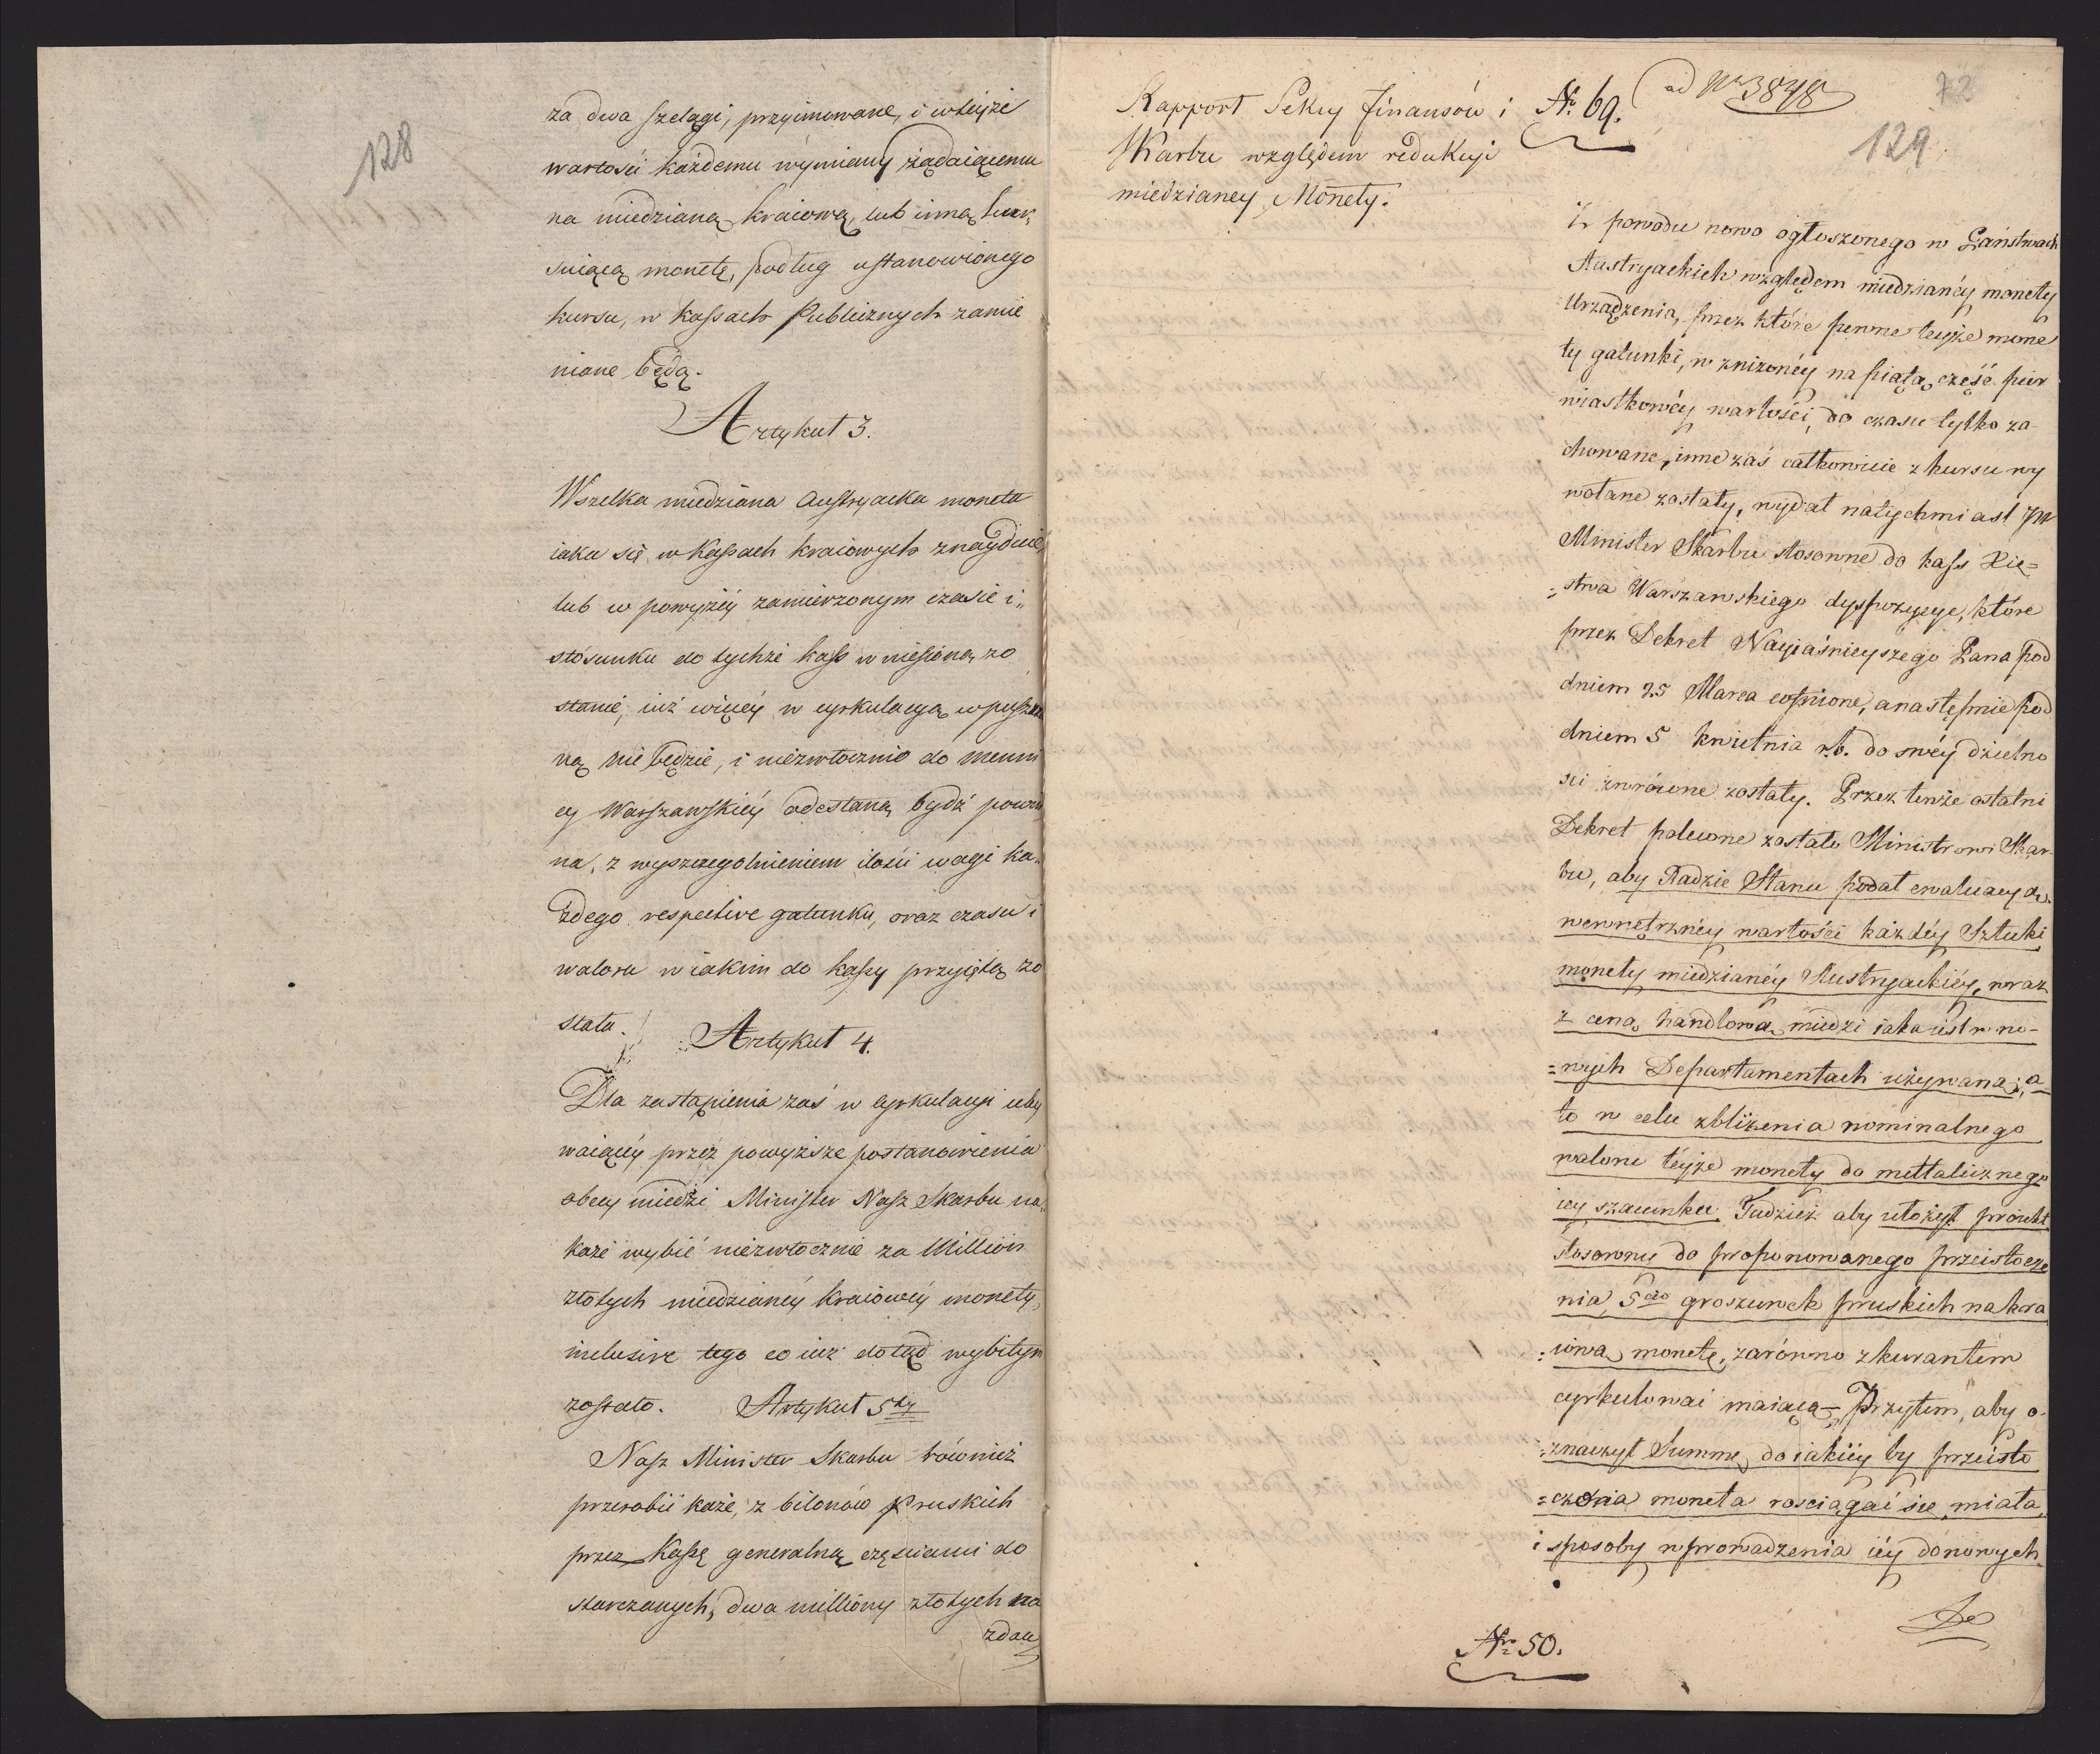 128
za dwa szelągi, przyimowane, i wteyże
wartości każdemu wymiany żądaiącemu
na miedzianą kraiową, lub inną kur
suiącą monetę, podług ustanowionego
kursu, w kassach Publicznych zamie
niane będą.
Artykuł 3.
Wszelka miedziana Austryacka moneta
iaka się w Kassach kraiowych znaydzie,
lub w powyżéy zamierzonym czasie i„
stósunku do tychże kass wniesioną zo
stanie, iuż więcéy w cyrkulacyą wpuszczo
ną nie będzie, i niezwłocznie do menni
cy Warszawskiéy odesłaną bydź powin
na, z wyszczegolnieniem ilości wagi ka„
żdego respective gatunku, oraz czasu i
waloru w iakim do kassy przyiętą zo
stała.
Artykuł 4.
Dla zastąpienia zaś w cyrkulacyi uby
waiącéy przez powyższe postanowienia
obcey miedzi Minister Nasz Skarbu na„
każe wybić niezwłocznie za Million
złotych miedzianéy kraiowéy monety,
inclusive tego co iuż dotąd wybitym
zostało. Artykuł 5ty
Nasz Minister Skarbu również
przerobić każe, z bilonów pruskich
przez Kassę generalną częściami do
starczanych, dwa milliony złotych na
zdaw
Rapport Sekcyi Finansów i
Skarbu względem redukcyi
miedzianey Monety.
Nr. 69.
ad Nr 3848
72
129
Z powodu nowo ogłoszonego w Państwach
Austryackich względem miedzianéy monety
Urządzenia, przez które pewne teyże mone
ty gatunki, w zniżonéy na piątą część pier
wiastkowéy wartości, do czasu tylko za
chowane, inne zaś całkowicie z kursu wy
wołane zostały, wydał natychmiast JW
Minister Skarbu stosowne do kass Xię=
=stwa Warszawskiego dyspozycye, które
przez Dekret Nayiaśnieyszego Pana pod
dniem 25 Marca cofnione, anastępnie pod
dniem 5 kwietnia r.b. do swéy dzielno
ści zwrócone zostały. Przez tenże ostatni
Dekret polecone zostało Ministrowi Skar
bu, aby Radzie Stanu podał ewaluacyą
wewnętrznéy wartości każdéy Sztuki
monety miedzianéy Austryackiéy, wraz
z ceną handlową miedzi iaka iest w no-
=wych Departamentach używana; a
to w celu zbliżenia nominalnego
waloru téyże monety do mettalicznego
iey szacunku. Tudzież aby ułożył proiekt
stosowny do proponowanego przeistocze
nia 5cio groszuwek pruskich na kra
=iową monetę, zarówno z kurantem
cyrkulować maiącą – Przytem, aby o
=znaczył Summę, do iakiéy by przeisto
=czonia moneta rosciągać się miała,
i sposoby wprowadzenia iéy donowych
De
Nr 50.